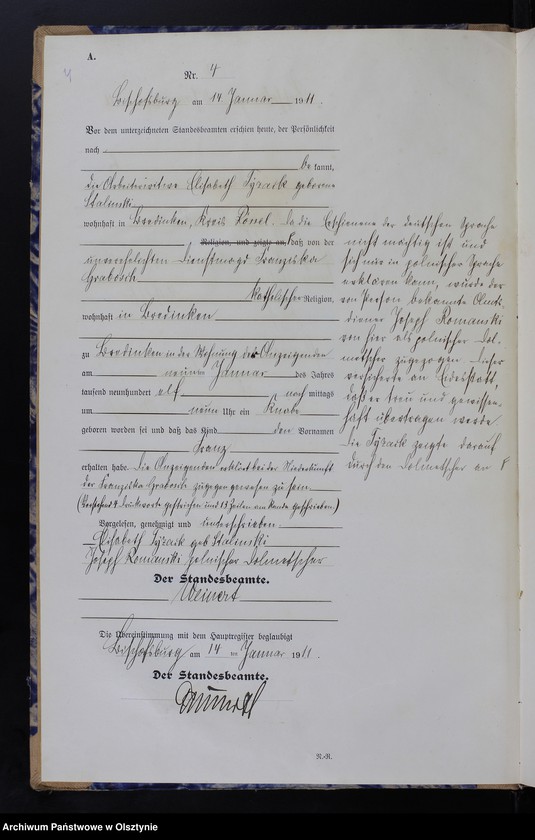 A.
4
Nr. 4
Bischofsburg am 14 Januar 1911.
Vor dem unterzeichneten Standesbeamten erschien heute, der Persönlichkeit
nach
be kannt,
die Arbeiterwitwe Elisabeth geborene
Stalinski
wohnhaft in Bredinken, Kreis Rößel. Da die Erschienene der deutschen Sprache
nicht mächtig ist und
sich nur in polnischer Sprache
erklären kann, wurde der
von Person bekannte Amts-
diener Joseph Romanski
von hier als polnischer Dol-
metscher zugezogen. Dieser
versicherte an Eidesstatt,
daß er treu und gewissen-
haft übertragen werde
Die zeigte darauf
durch den Dolmetscher an
Religion, und zeigte an, daß von der
unverehelichten Dienstmagd Franziska
Grabosch
katholischer Religion,
wohnhaft in Bredinken
zu Bredinken in der Wohnung der Anzeigenden
am neunten Januar des Jahres
tausend neunhundert elf nach mittags
um neun Uhr ein Knabe
geboren worden sei und daß das Kind den Vornamen
Franz
erhalten habe. Die Anzeigende erklärt bei der Niederkunft
der Franziska Grabosch zugegen gewesen zu sein.
(Vorstehend 4 Druckworte gestrichen und 13 Zeilen am Rande geschrieben.)
Vorgelesen, genehmigt und unterschrieben
Elisabeth geb Stalinski
Joseph Romanski polnischer Dolmetscher
Der Standesbeamte.
Weinert
Die Übereinstimmung mit dem Hauptregister beglaubigt
Bischofsburg am 14 ten Januar 1911.
Der Standesbeamte.
N.-R.
Archiwum Państwowe w Olsztynie